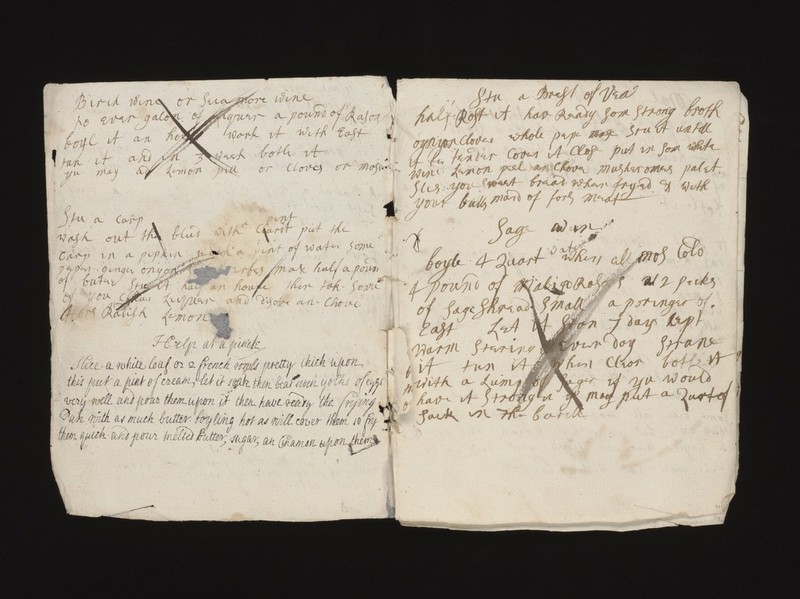 Birch wine or Sicamore wine
to ever galon of liquer a pound of Rason
boyl it an hour work it with East
tun it and in 3 week botl it
you may ad Lemon pill or Cloves or
Stu a Carp
wash out the blud with Claret put the
Carp in a pipkin with a pint of water some
ginger onyon mac half a pound
of buter Stu it half an houer then tak some
of you Liquer and disolve an Chove
Ralish Lemon
Help at a pinch
Slice a white loaf or 2 french rouls pretty thick upon
this put a pint of cream, let it soak then beat yolks of eggs
very well and pour them upon it then have ready the frying
Pan with as much butter boyling hot as will cover them so fry
them quick and pour melted butter, sugar, an Cinamon upon them
Stu a Brest of Veal
half Rost it hav Ready Som Strong broth
onyon Cloves whole pepr Stu it untill
it be tender Cover it Clos put in Som white
wine Lemon peel an Chove mushromes palat
Slis you sweet bread when fryed & with
your balls maid of fors meat
Sage win
boyle 4 Quart water when all mos Cold
4 Pound of Maligo Rasons 2 pecks
of Sage Shread Small a poringer of
East Let it Stan 7 days kept
Warm Stering Ever day Strane
it tun it when Clear botl it
with a Lump of Suger if you would
have it Stronger you may put a Quart of
Sack in the barill